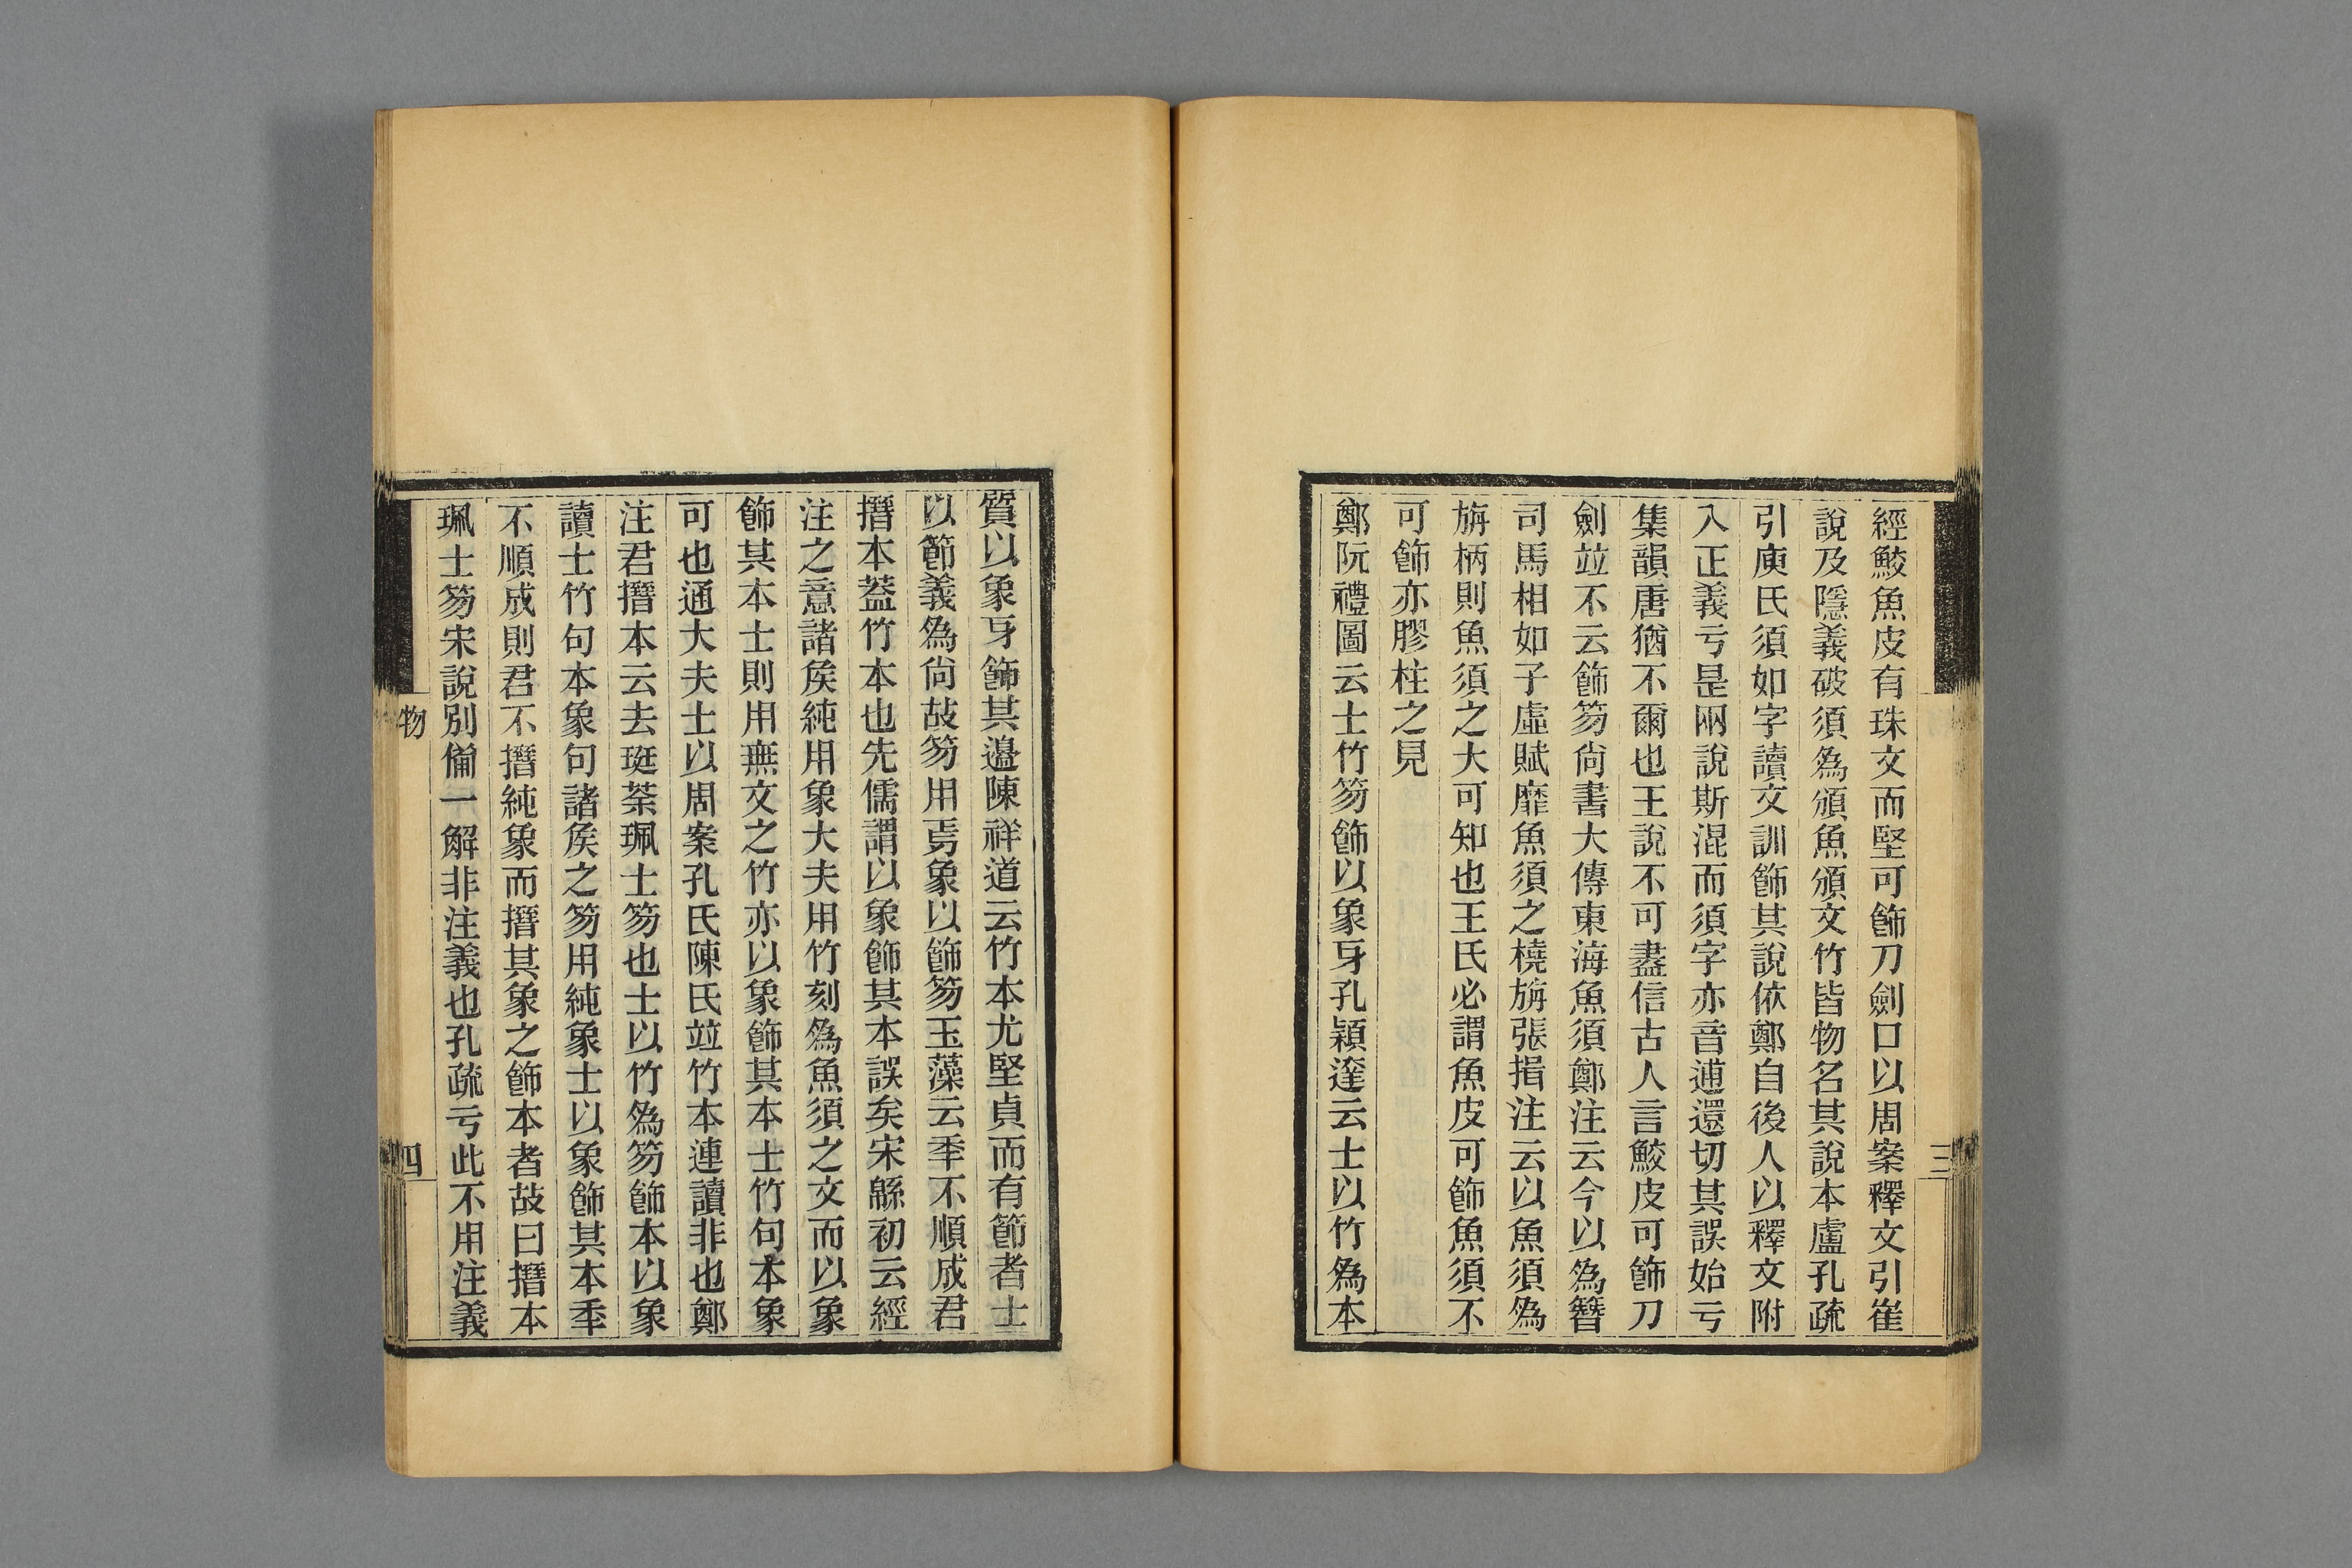 經鮫魚皮有珠文而堅可飾刀劍口以周案釋文引崔
說及隱義破須爲頒魚頒文竹皆物名其說本盧孔疏
引庾氏須如字讀文訓飾其說依鄭自後人以釋文附
入正義亏是兩說斯混而須字亦音逋還切其誤始亏
集韻唐猶不爾也王說不可盡信古人言鮫皮可飾刀
劍竝不云飾笏尙書大傳東海魚須鄭注云今以爲簪
司馬相如子虛賦靡魚須之橈旃張揖注云以魚須爲
旃柄則魚須之大可知也王氏必謂魚皮可飾魚須不
可飾亦膠柱之見
鄭阮禮圖云士竹笏飾以象牙孔穎達云士以竹爲本
三
質以象牙飾其邊陳祥道云竹本尤堅貞而有節者士
以節義爲尙故笏用焉象以飾笏玉藻云年不順成君
搢本葢竹本也先儒謂以象飾其本誤矣宋緜初云經
注之意諸矦純用象大夫用竹刻爲魚須之文而以象
飾其本士則用無文之竹亦以象飾其本士竹句本象
可也通大夫士以周案孔氏陳氏竝竹本連讀非也鄭
注君搢本云去珽荼珮士笏也士以竹爲笏飾本以象
讀士竹句本象句諸矦之笏用純象士以象飾其本年
不順成則君不搢純象而搢其象之飾本者故曰搢本
珮士笏宋說別僃一解非注義也孔疏亏此不用注義
物
四